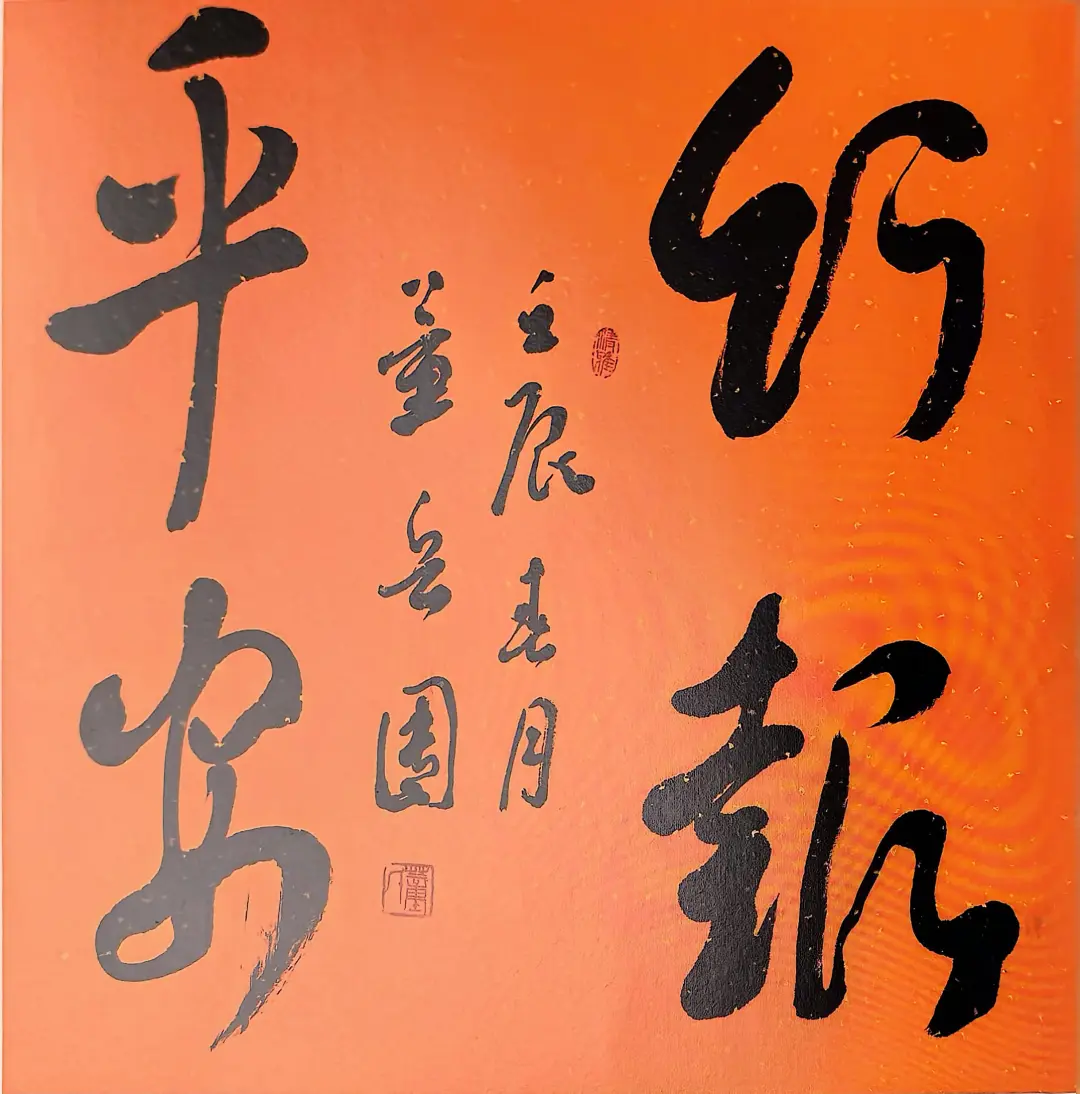 竹報
平安
壬辰春月
董岳園